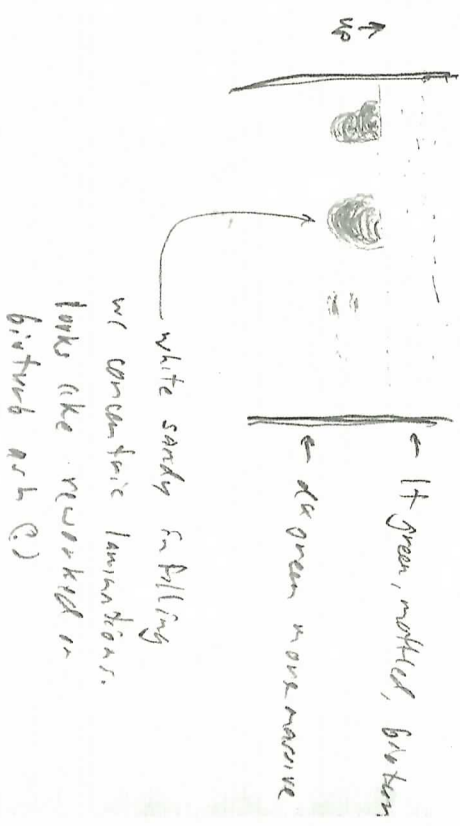 ↑ up
← lt green, mottled, bioturb
← dk green more massive
white sandy infilling
w/ concentric laminations.
looks like reworked or
bioturb ash (?)